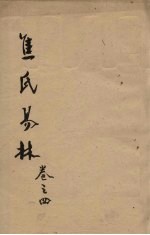 焦氏易林
卷之四